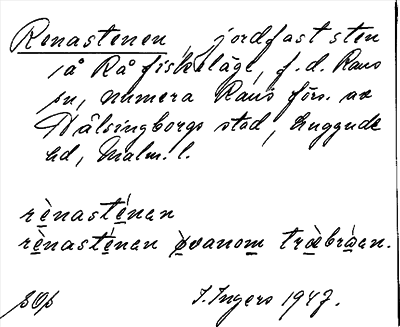 Renastenen, jordfast sten
på Rå fiskeläge, f.d. Raus
sn, numera Raus förs. av
Hälsingborgs stad, Luggude
hd, Malm. l.
rènasténan
rènasténan òvanom træbròan.
I. Ingers 1947.